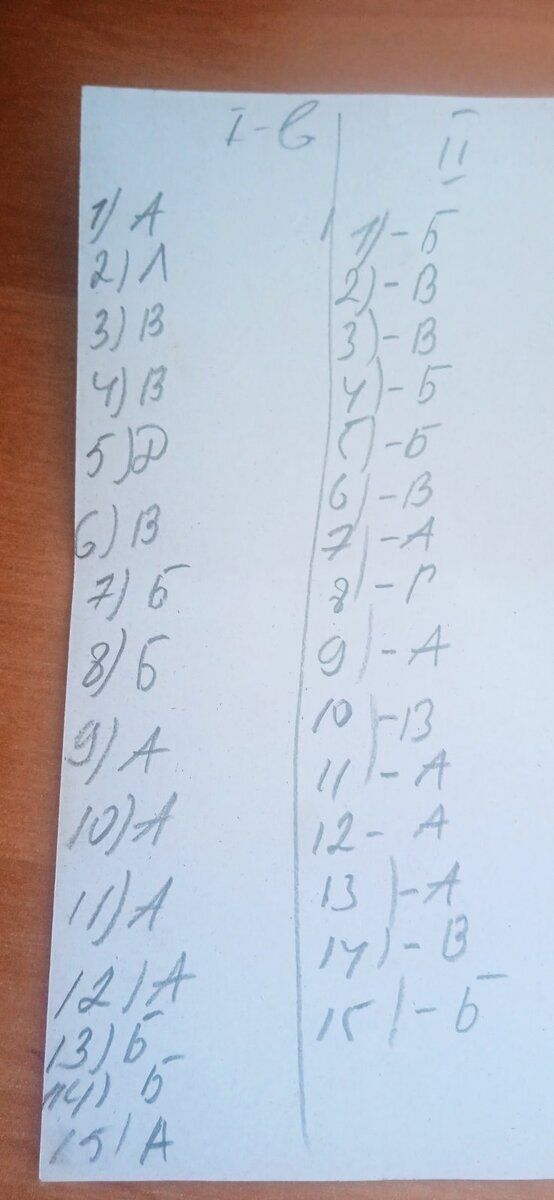 I-в
1) А
2) А
3) В
4) В
5) Д
6) В
7) Б
8) Б
9) А
10) А
11) А
12) А
13) Б
14) Б
15) А
II
1) - Б
2) - В
3) - В
4) - Б
5) - Б
6) - В
7) - А
8) - Г
9) - А
10) - В
11) - А
12 - А
13) - А
14) - В
15) - Б